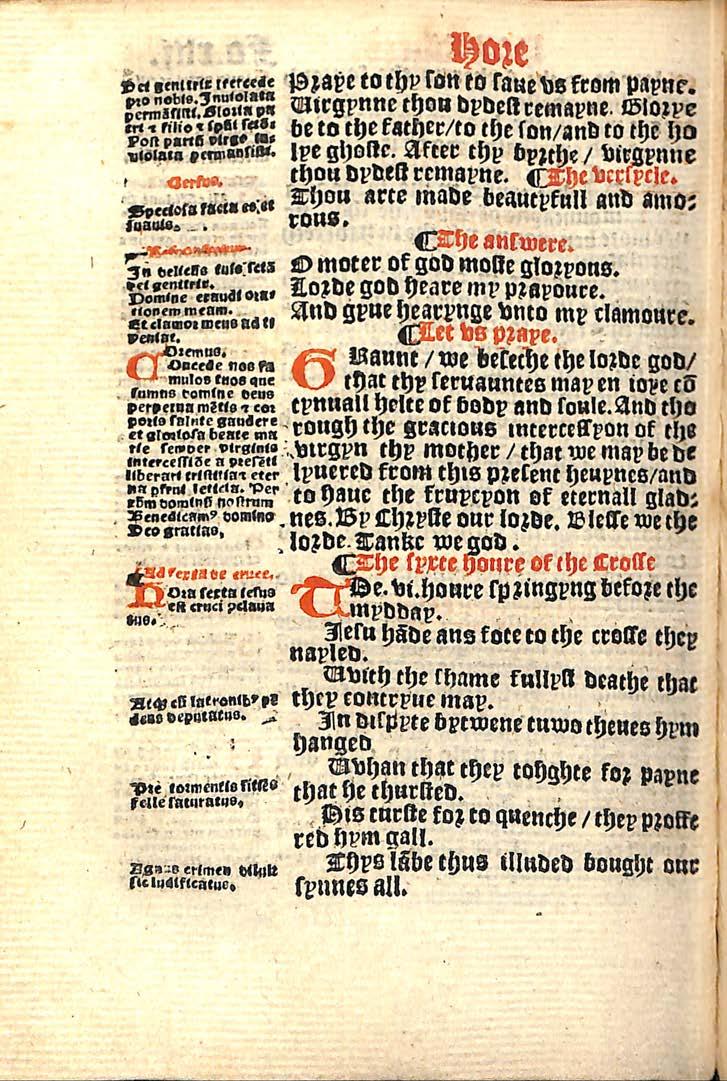 Hore
Dei genitrix itercede
pro nobis. Inuiolata
permāsisti. Gloria pa
tri ⁊ filio ⁊ spūi sctō.
Post partū virgo in-
uiolata permansisti.
Versus.
Speciosa facta es et
suauis.
In delicijs tuis sctā
dei genitrix.
Domine exaudi ora-
tionem meam.
Et clamor meus ad te
veniat.
Oremus.
COncede nos fa
mulos tuos que
sumus domine deus
perpetua mētis ⁊ cor
poris salute gaudere
et gloriosa beate ma
rie semper virginis
intercessiōe a presēti
liberari tristitia ⁊ eter
na pfrui leticia. Per
xp̄m dominū nostrum
Benedicam⁹ domino
Deo gratias.
Ad sextā de cruce.
HOra sexta iesus
est cruci
sus.
Atq; cū latronib⁹ pē
dens deputatus.
Pre tormentis sitiēs
felle saturatus,
Agnus crimen diluit
sic ludificatus.
Praye to thy son to saue vs from payne.
Uirgynne thou dydest remayne. Glorye
be to the father/to the son/and to the ho
lye ghoste. After thy byrthe / virgynne
thou dydest remayne. ¶The versycle.
Thou arte made beautyfull and amo:
rous.
¶The answere.
O moter of god moste gloryous.
Lorde god heare my prayoure.
And gyue hearynge vnto my clamoure.
¶Let vs praye.
GRaunt / we beseche the lorde god/
that thy seruauntes may en ioye cō
tynuall helte of body and soule. And tho
rough the gracious intercessyon of the
virgyn thy mother / that we may be de
lyuered from this present heuynes/and
to haue the fruycyon of eternall glad:
nes. By Chryste our lorde. Blesse we the
lorde. Tanke we god.
¶The syxte houre of the Crosse
THe. vi. houre springyng before the
mydday.
Jesu hāde ans fote to the crosse they
nayled.
Uvith the shame fullyst deathe that
they contryue may.
In dispyte bytwene tuwo theues hym
hanged
Uvhan that they tohghte for payne
that he thursted.
His turste for to quenche / they proffe
red hym gall.
Thys lābe thus illuded bought our
synnes all.